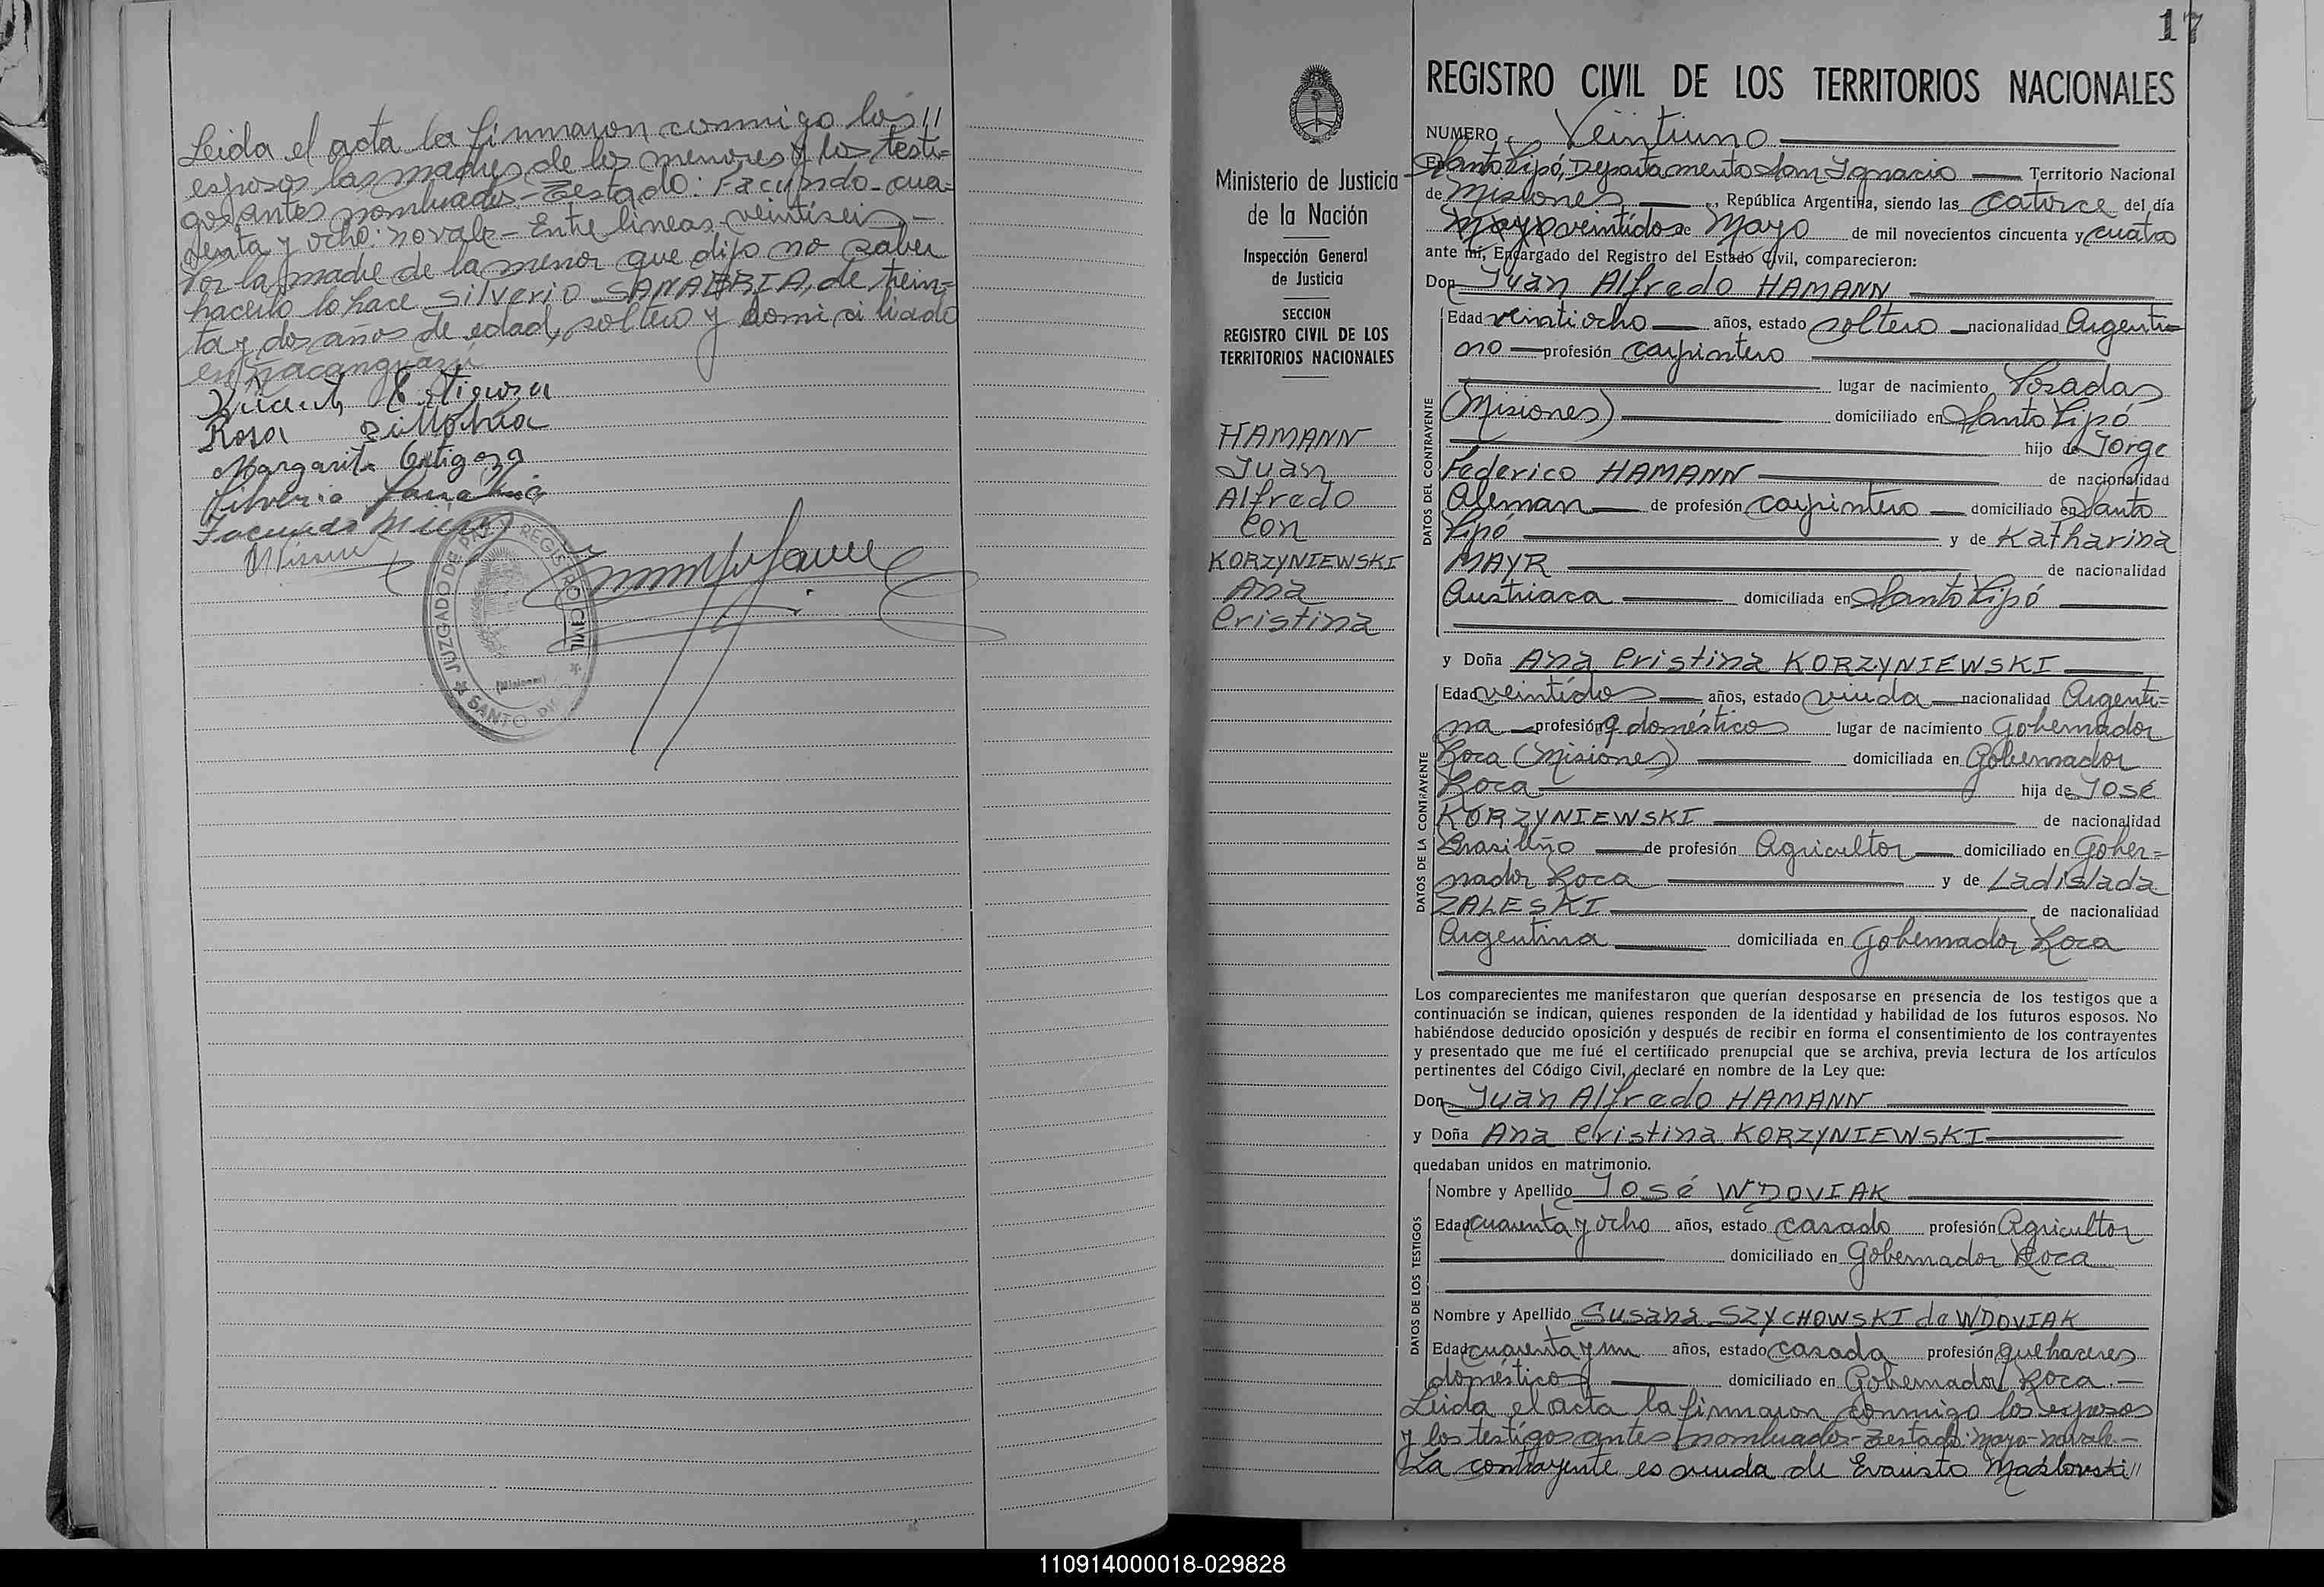 Leida el acta la firmaron conmigo los //
esposos las madres de los menores y los testi=
gos antes nombrados - Testado: Facundo - cua=
renta y ocho: no vale - Entre lineas - veintiseis -
Por la madre de la menor que dijo no saber
hacerlo lo hace Silverio SANABRIA, de trein=
ta y dos años de edad, soltero y domiciliado
en
Rosa
Margarita Ortigoza
Silverio Sanabria
Facundo
JUZGADO DE PAZ Y REGISTRO CIVIL
(Misiones)
SANTO PIPÓ
17
Ministerio de Justicia
de la Nación
Inspección General
de Justicia
SECCION
REGISTRO CIVIL DE LOS
TERRITORIOS NACIONALES
HAMANN
Juan
Alfredo
con
KORZYNIEWSKI
Ana
Cristina
REGISTRO CIVIL DE LOS TERRITORIOS NACIONALES
NUMERO Veintiuno
En Santo Pipó, Departamento San Ignacio Territorio Nacional
de Misiones, República Argentina, siendo las catorce del día
mayo veintidos de Mayo de mil novecientos cincuenta y cuatro
ante mí, Encargado del Registro del Estado Civil, comparecieron:
Don Juan Alfredo HAMANN
DATOS DEL CONTRAYENTE
Edad veintiocho años, estado soltero nacionalidad Argenti=
no profesión carpintero
lugar de nacimiento Posadas
(Misiones) domiciliado en Santo Pipó
hijo de Jorge
Federico HAMANN de nacionalidad
Aleman de profesión carpintero domiciliado en Santo
Pipó y de Katharina
MAYR de nacionalidad
Austriaca domiciliada en Santo Pipó
y Doña Ana Cristina KORZYNIEWSKI
DATOS DE LA CONTRAYENTE
Edad veintidos años, estado viuda nacionalidad Argenti=
na profesión q. domésticos lugar de nacimiento Gobernador
Roca (Misiones) domiciliada en Gobernador
Roca hija de José
KORZYNIEWSKI de nacionalidad
Brasileño de profesión Agricultor domiciliado en Gober=
nador Roca y de Ladislada
ZALESKI de nacionalidad
Argentina domiciliada en Gobernador Roca
Los comparecientes me manifestaron que querían desposarse en presencia de los testigos que a
continuación se indican, quienes responden de la identidad y habilidad de los futuros esposos. No
habiéndose deducido oposición y después de recibir en forma el consentimiento de los contrayentes
y presentado que me fué el certificado prenupcial que se archiva, previa lectura de los artículos
pertinentes del Código Civil, declaré en nombre de la Ley que:
Don Juan Alfredo HAMANN
y Doña Ana Cristina KORZYNIEWSKI
quedaban unidos en matrimonio.
DATOS DE LOS TESTIGOS
Nombre y Apellido José WDOVIAK
Edad cuarenta y ocho años, estado casado profesión Agricultor
domiciliado en Gobernador Roca
Nombre y Apellido Susana SZYCHOWSKI de WDOVIAK
Edad cuarenta y un años, estado casada profesión quehaceres
domésticos domiciliado en Gobernador Roca.-
Leida el acta la firmaron conmigo los esposos
y los testigos antes nombrados - Testado: mayo - no vale -
La contrayente es viuda de Evaristo Maslowski //
110914000018-029828